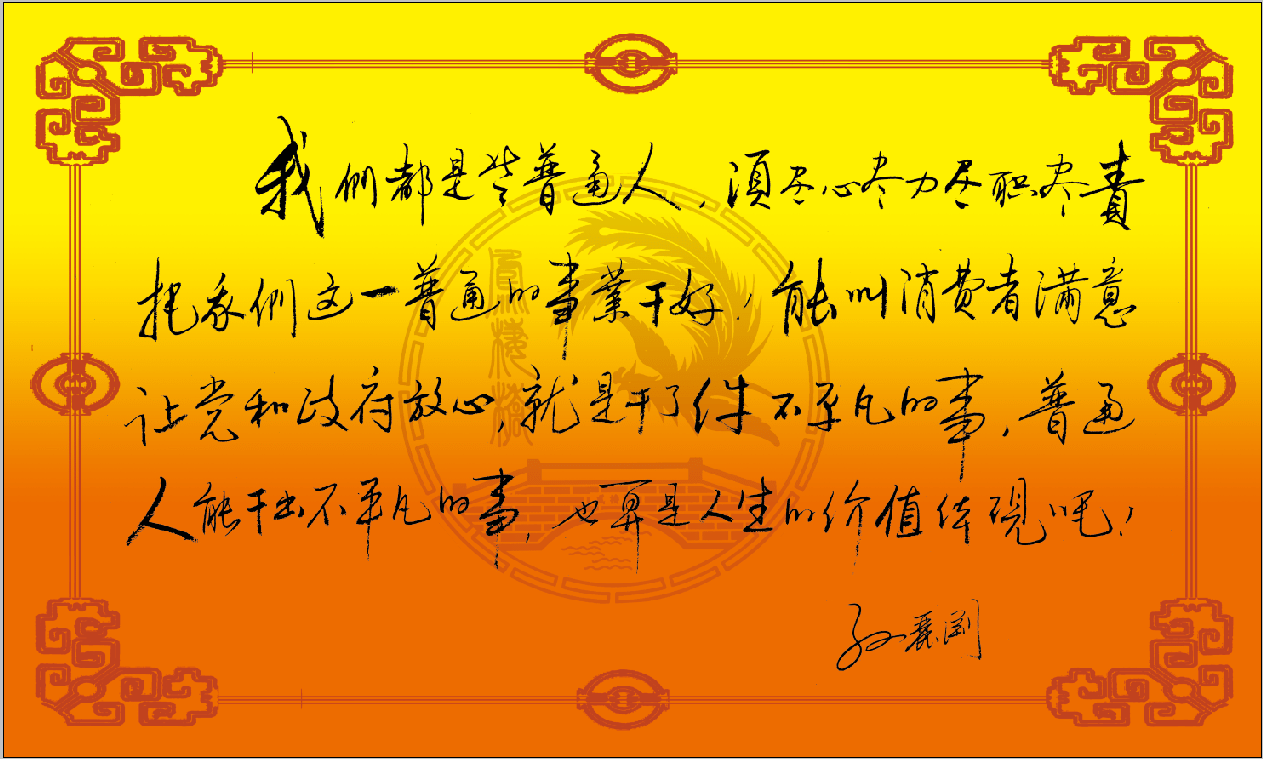 我們都是些普通人，須尽心尽力尽职尽責
把我們这一普通的事業干好，能叫消费者满意
让党和政府放心，就是干了件不平凡的事，普通
人能干出不平凡的事，也算是人生的价值体現吧！